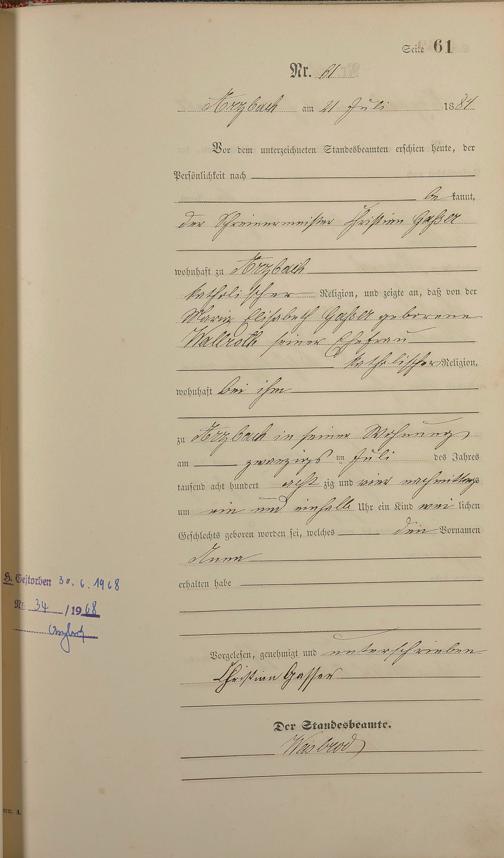 Seite 61
Nr. 61
Arzbach am 21 Juli 1884
Vor dem unterzeichneten Standesbeamten erschien heute, der
Persönlichkeit nach
be kannt,
der Schreinermeister Christian Gaßer
wohnhaft zu Arzbach
katholischer Religion, und zeigte an, daß von der
Maria Elisabeth Gaßer geborene
Wallroth seiner Ehefrau
katholischer Religion,
wohnhaft bei ihm
zu Arzbach in seiner Wohnung,
am zwanzigs ten Juli des Jahres
tausend acht hundert acht zig und vier nachmittags
um ein und einhalb Uhr ein Kind weib lichen
Geschlechts geboren worden sei, welches den Vornamen
Anna
erhalten habe
H. Gestorben 30.6.1968
Nr. 34 /1968
Arzbach
Vorgelesen, genehmigt und unterschrieben
Christian Gasser
Der Standesbeamte.